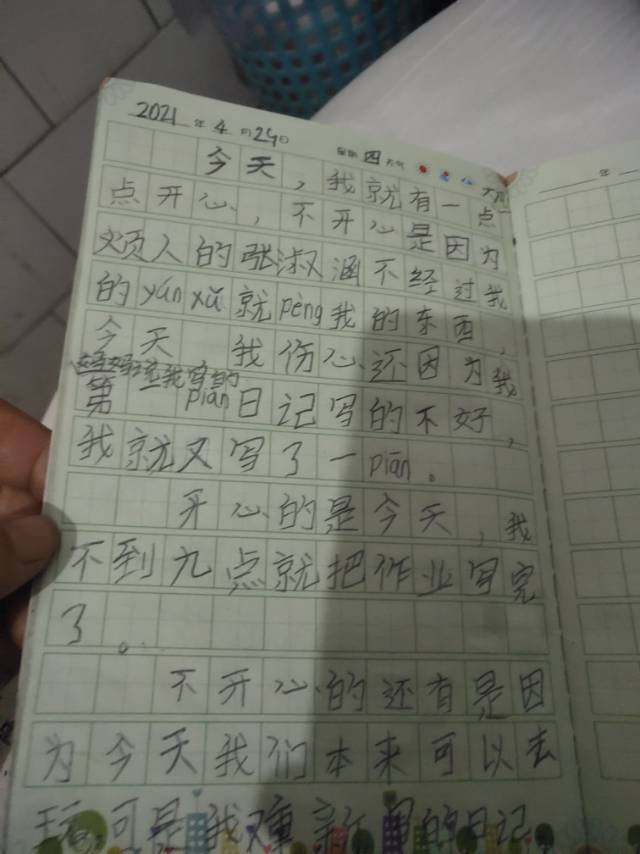 2021年4月29日 星期四 天气
今天，我就有一点
点开心，不开心是因为
烦人的张淑涵不经过我
的yúnxǔ就pèng我的东西，
今天 我伤心还因为我
妈妈说我写的
第 piān日记写的不好，
我就又写了一piān。
开心的是今天，我
不到九点就把作业写完
了。
不开心的还有是因
为今天我们本来可以去
玩可是我重新写的日记
年